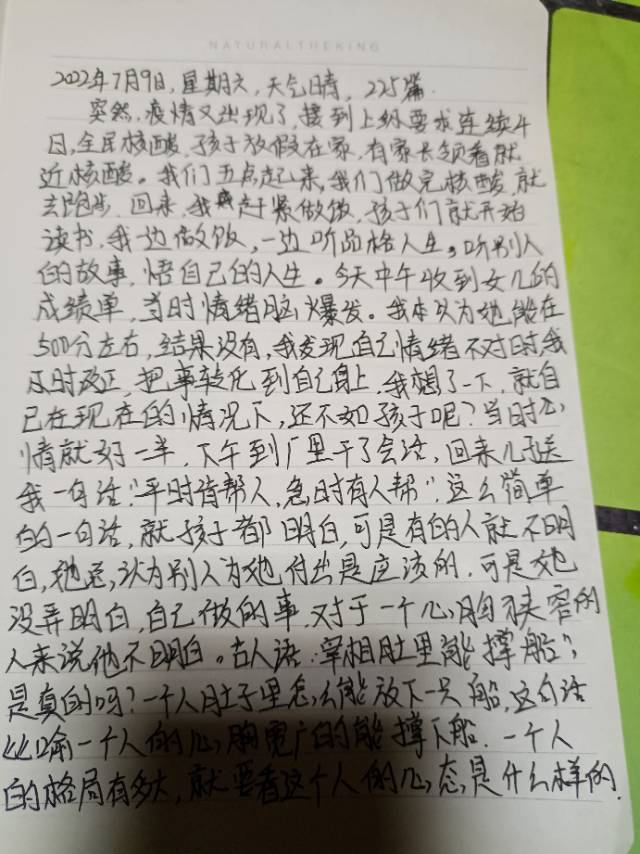 NATURALTHEKING
2022年7月9日,星期六,天气晴,225篇.
突然,疫情又出现了,接到上级要求连续4
日,全民核酸,孩子放假在家,有家长领着就
近核酸。我们五点起来,我们做完核酸,就
去跑步,回来,我赶紧做饭,孩子们就开始
读书,我一边做饭,一边听品格人生,听别人
的故事,悟自己的人生。今天中午收到女儿的
成绩单,当时情绪脑爆发。我本以为她能在
500分左右,结果没有,我发现自己情绪不对时,我
及时改正,把事转化到自己身上,我想了一下,就自
己在现在的情况下,还不如孩子呢?当时心
情就好一半,下午到厂里干了会活,回来儿子送
我一句话:“平时肯帮人,急时有人帮”,这么简单
的一句话,就孩子都明白,可是有的人就不明
白,她总认为别人为她付出是应该的,可是她
没弄明白,自己做的事,对于一个心胸狭窄的
人来说他不明白。古人语:宰相肚里能撑船?,
是真的吗?一个人肚子里怎么能放下一只船,这句话
比喻一个人的心胸宽广的能撑下船,一个人
的格局有多大,就要看这个人的心态是什么样的.